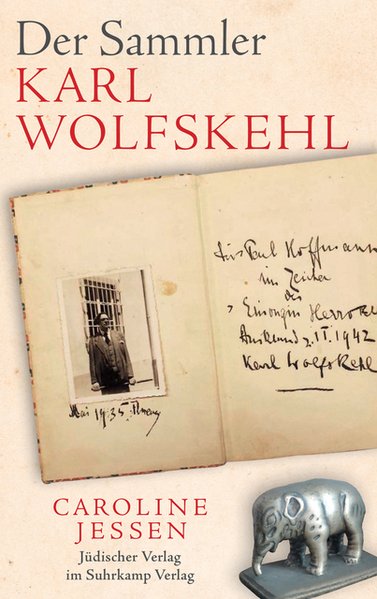 Der Sammler
KARL
WOLFSKEHL
für Paul Hoffmann
im Zeichen
des
Auckland 2. II. 1942
Karl Wolfskehl
Mai 1935.
CAROLINE
JESSEN
Jüdischer Verlag
im Suhrkamp Verlag